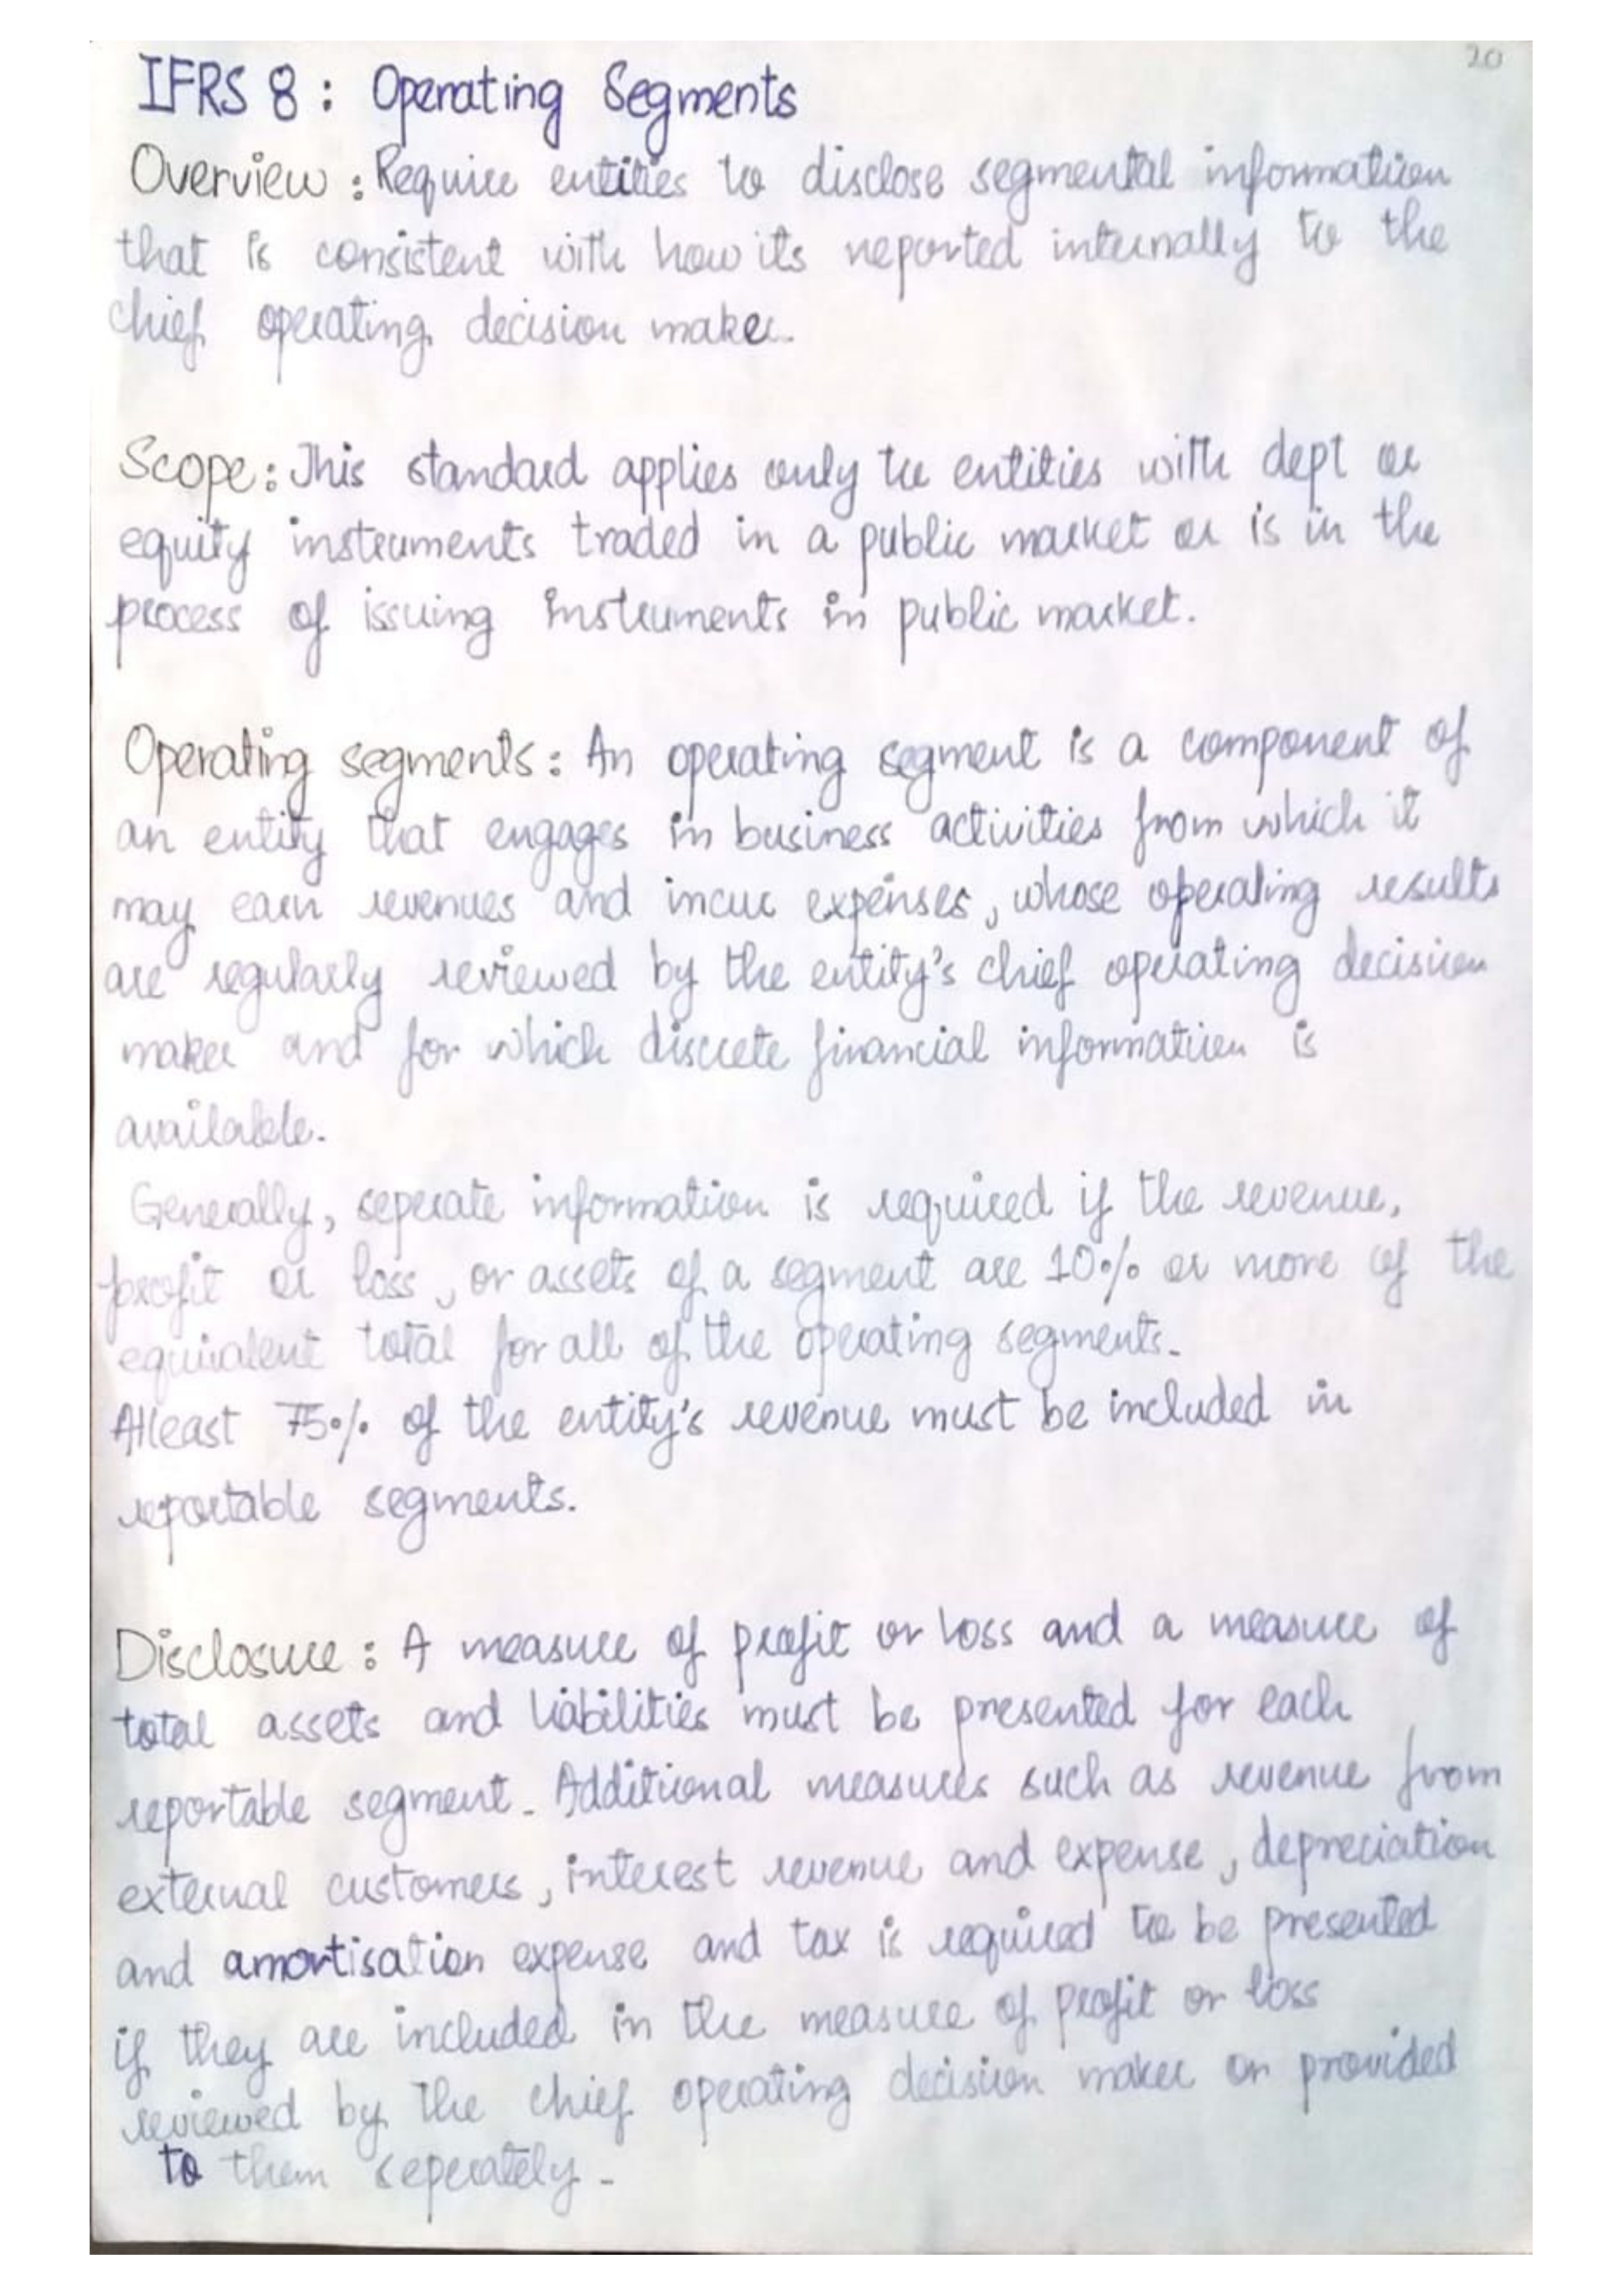 20
IFRS 8 : Operating Segments
Overview : Require entities to disclose segmental information
that is consistent with how its reported internally to the
chief operating decision maker.
Scope : This standard applies only to entities with dept or
equity instruments traded in a public market or is in the
process of issuing instruments in public market.
Operating segments : An operating segment is a component of
an entity that engages in business activities from which it
may earn revenues and incur expenses, whose operating results
are regularly reviewed by the entity's chief operating decision
maker and for which discrete financial information is
available.
Generally, seperate information is required if the revenue,
profit or loss, or assets of a segment are 10% or more of the
equivalent total for all of the operating segments.
Atleast 75% of the entity's revenue must be included in
reportable segments.
Disclosure : A measure of profit or loss and a measure of
total assets and liabilities must be presented for each
reportable segment. Additional measures such as revenue from
external customers, interest revenue and expense, depreciation
and amortisation expense and tax is required to be presented
if they are included in the measure of profit or loss
reviewed by the chief operating decision maker or provided
to them seperately.